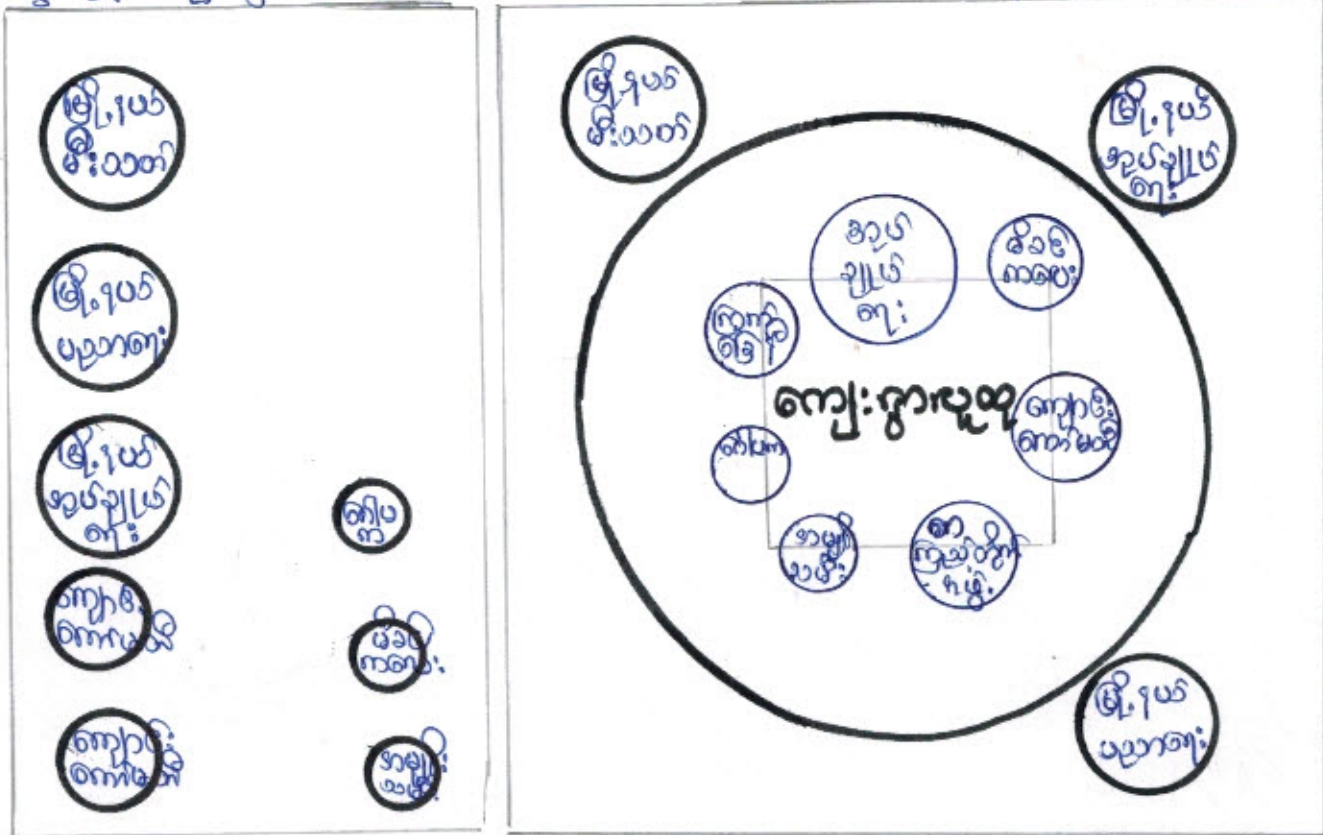 မြို့နယ်
မီးသတ်
မြို့နယ်
ပညာရေး
မြို့နယ်
အုပ်ချုပ်
ရေး
ကျောင်း
ကော်မတီ
ကျောင်း
ကော်မတီ
မိခင်
ကလေး
အမျိုး
သမီး
မြို့နယ်
မီးသတ်
မြို့နယ်
အုပ်ချုပ်
ရေး
အုပ်
ချုပ်
ရေး
မိခင်
ကလေး
ကြက်
ခြေနီ
ကျေးရွာလူထု
ကျောင်း
ကော်မတီ
အမျိုး
သမီး
စာ
ကြည့်တိုက်
အဖွဲ့
မြို့နယ်
ပညာရေး